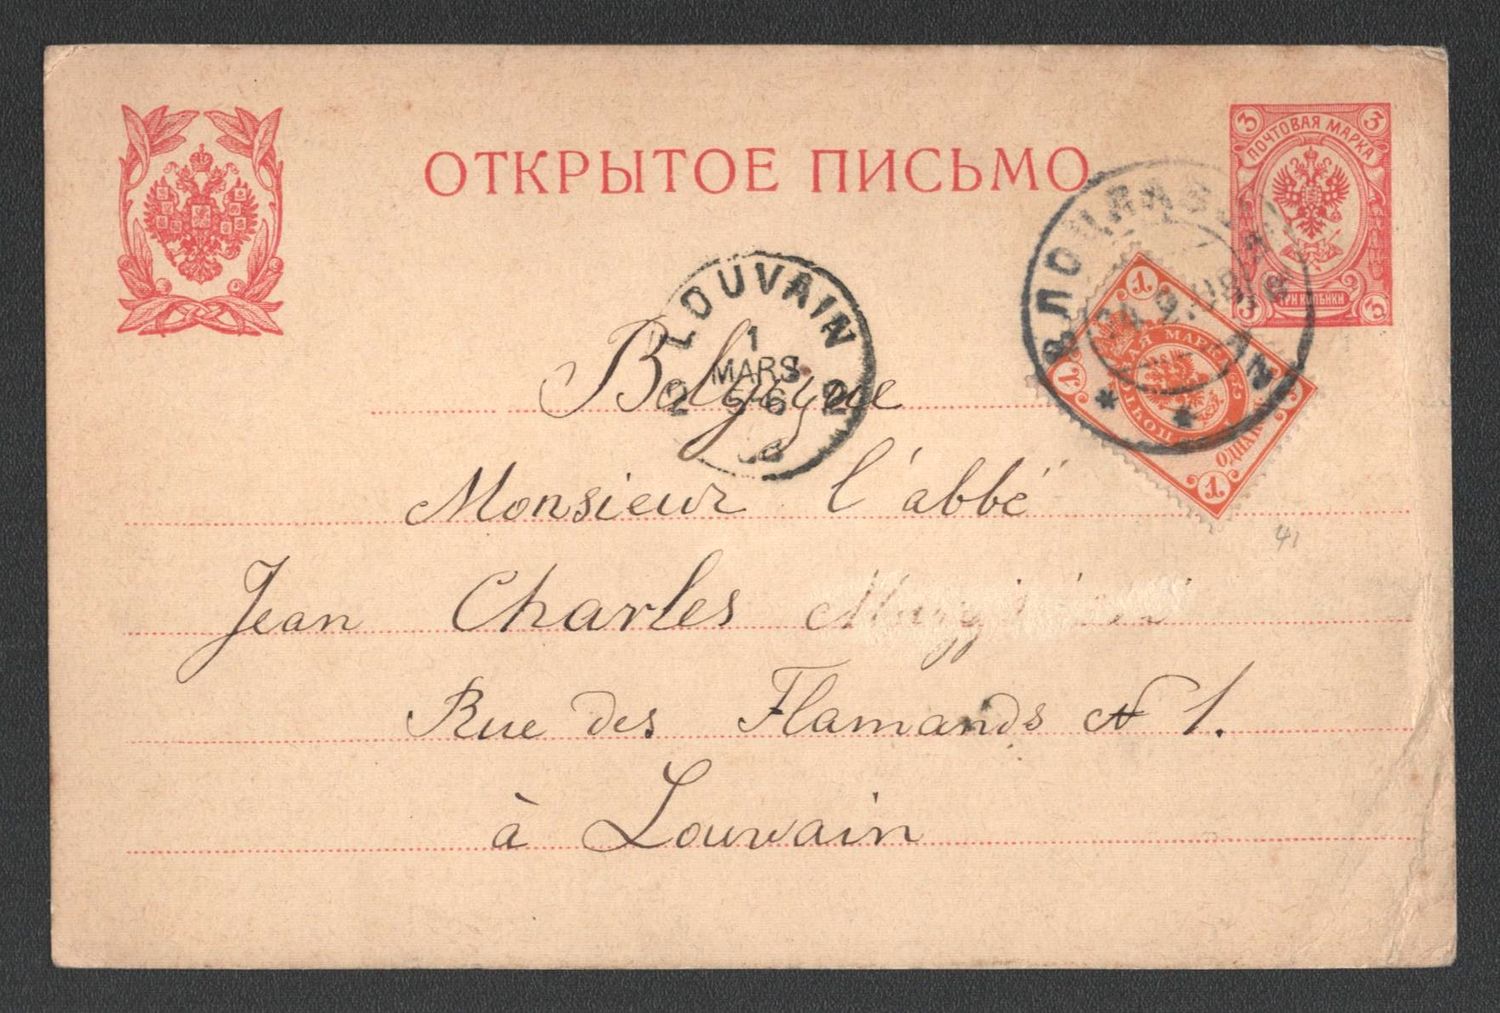 ОТКРЫТОЕ ПИСЬМО
3 3
ПОЧТОВАЯ МАРКА
ТРИ КОПѢЙКИ
3
LOUVAIN
1
MARS
5-6
2 2
1
МАРКА
1
ОДНА
1
Belgique
Monsieur l'abbé
Jean Charles
Rue des Flamands № 1.
à Louvain
41